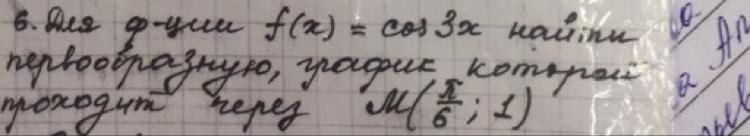 6. Для ф-ции f(x) = cos 3x найти
первообразную, график которой
проходит через M(π/6; 1)